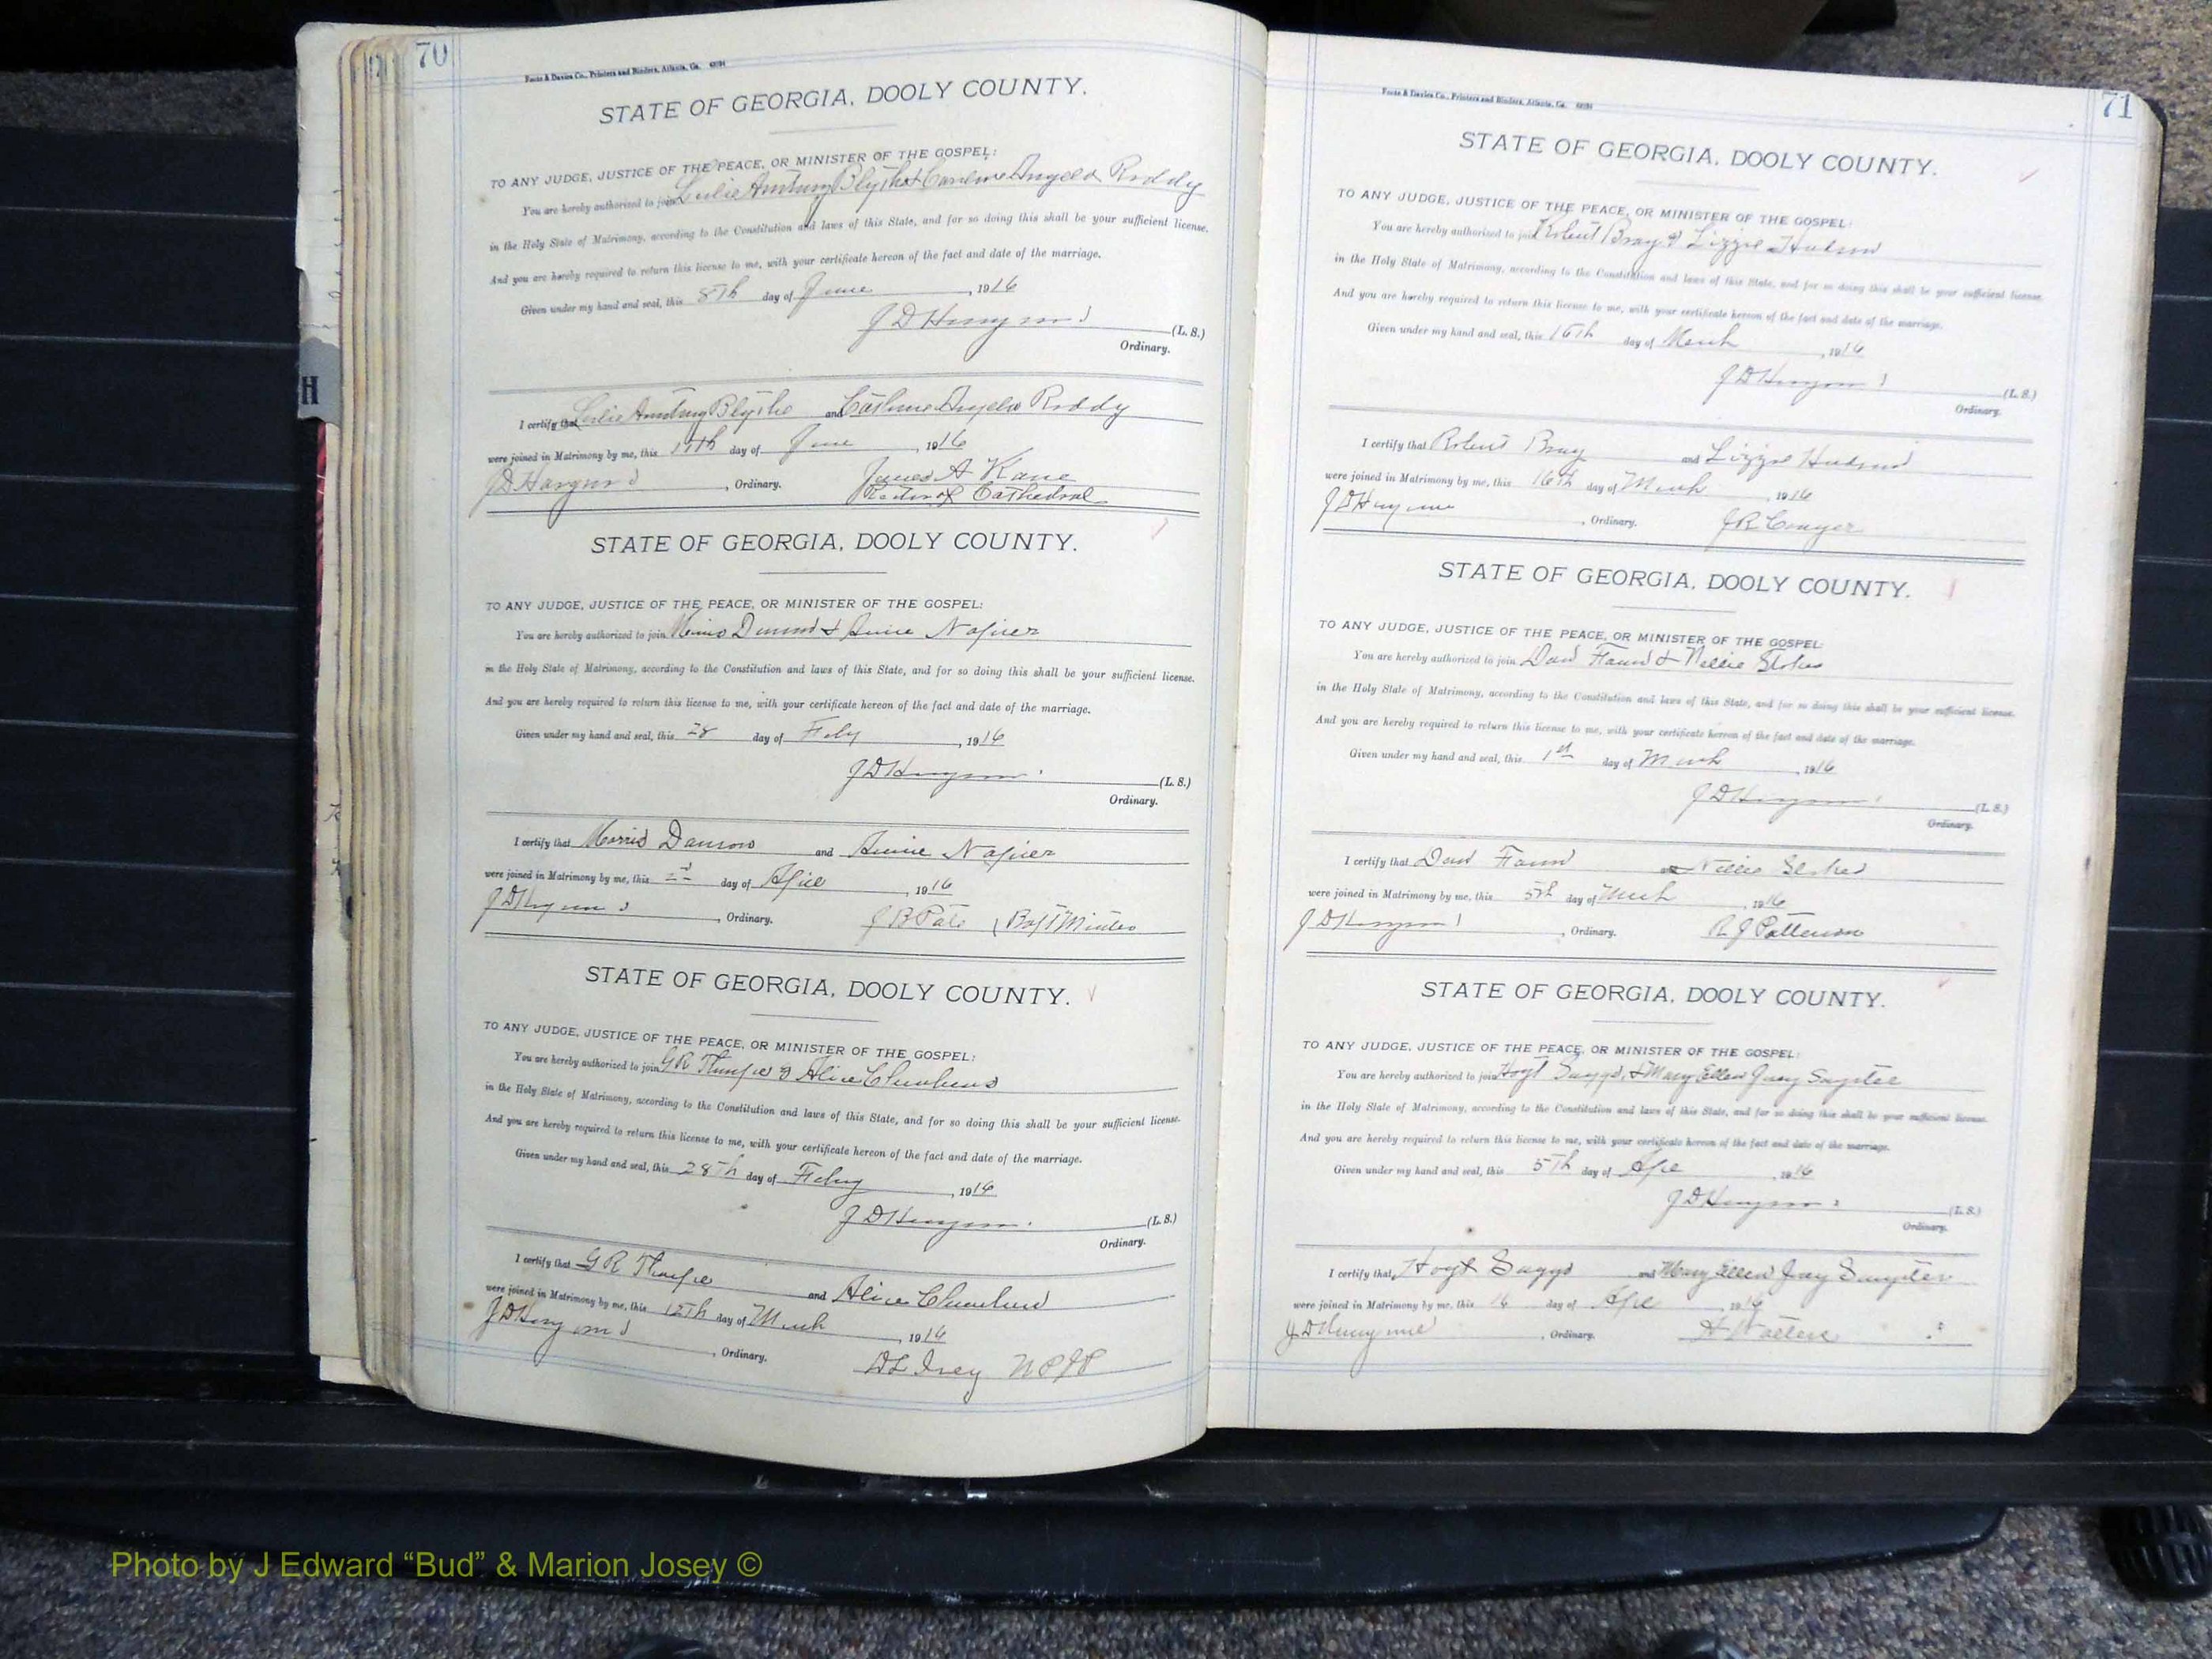 70
Foote & Davies Co., Printers and Binders, Atlanta, Ga.
STATE OF GEORGIA, DOOLY COUNTY.
TO ANY JUDGE, JUSTICE OF THE PEACE, OR MINISTER OF THE GOSPEL:
You are hereby authorized to join Leslie Anthony Blythe & Angela Roddy
in the Holy State of Matrimony, according to the Constitution and laws of this State, and for so doing this shall be your sufficient license.
And you are hereby required to return this license to me, with your certificate hereon of the fact and date of the marriage.
Given under my hand and seal, this 8th day of June, 1916
J D Hargrove (L. S.)
Ordinary.
I certify that Leslie Anthony Blythe and Angela Roddy
were joined in Matrimony by me, this day of June, 1916
J D Hargrove, Ordinary. James A Kane
Rector of Cathedral
STATE OF GEORGIA, DOOLY COUNTY.
TO ANY JUDGE, JUSTICE OF THE PEACE, OR MINISTER OF THE GOSPEL:
You are hereby authorized to join & Annie Napier
in the Holy State of Matrimony, according to the Constitution and laws of this State, and for so doing this shall be your sufficient license.
And you are hereby required to return this license to me, with your certificate hereon of the fact and date of the marriage.
Given under my hand and seal, this 28 day of Feby, 1916
J D Hargrove (L. S.)
Ordinary.
I certify that Morris and Annie Napier
were joined in Matrimony by me, this 2nd day of Apice, 1916
J D Hargrove, Ordinary. J B Pate Bapt Minister
STATE OF GEORGIA, DOOLY COUNTY.
TO ANY JUDGE, JUSTICE OF THE PEACE, OR MINISTER OF THE GOSPEL:
You are hereby authorized to join G R Tharpe & Alice
in the Holy State of Matrimony, according to the Constitution and laws of this State, and for so doing this shall be your sufficient license.
And you are hereby required to return this license to me, with your certificate hereon of the fact and date of the marriage.
Given under my hand and seal, this 28th day of Feby, 1916
J D Hargrove (L. S.)
Ordinary.
I certify that G R Tharpe and Alice
were joined in Matrimony by me, this 12th day of March, 1916
J D Hargrove, Ordinary.
D L Ivey N P J P
71
Foote & Davies Co., Printers and Binders, Atlanta, Ga.
STATE OF GEORGIA, DOOLY COUNTY.
TO ANY JUDGE, JUSTICE OF THE PEACE, OR MINISTER OF THE GOSPEL:
You are hereby authorized to join Robert Bray & Lizzie Hudson
in the Holy State of Matrimony, according to the Constitution and laws of this State, and for so doing this shall be your sufficient license.
And you are hereby required to return this license to me, with your certificate hereon of the fact and date of the marriage.
Given under my hand and seal, this 16th day of March, 1916
J D Hargrove (L. S.)
Ordinary.
I certify that Robert Bray and Lizzie Hudson
were joined in Matrimony by me, this 16th day of March, 1916
J D Hargrove, Ordinary. J R Conger
STATE OF GEORGIA, DOOLY COUNTY.
TO ANY JUDGE, JUSTICE OF THE PEACE, OR MINISTER OF THE GOSPEL:
You are hereby authorized to join & Nellie Stokes
in the Holy State of Matrimony, according to the Constitution and laws of this State, and for so doing this shall be your sufficient license.
And you are hereby required to return this license to me, with your certificate hereon of the fact and date of the marriage.
Given under my hand and seal, this 1st day of March, 1916
J D Hargrove (L. S.)
Ordinary.
I certify that and Nellie Stokes
were joined in Matrimony by me, this 5th day of March, 1916
J D Hargrove, Ordinary. R J Patterson
STATE OF GEORGIA, DOOLY COUNTY.
TO ANY JUDGE, JUSTICE OF THE PEACE, OR MINISTER OF THE GOSPEL:
You are hereby authorized to join Hoyt Suggs & Mary Ellen
in the Holy State of Matrimony, according to the Constitution and laws of this State, and for so doing this shall be your sufficient license.
And you are hereby required to return this license to me, with your certificate hereon of the fact and date of the marriage.
Given under my hand and seal, this 5th day of Apl, 1916
J D Hargrove (L. S.)
Ordinary.
I certify that Hoyt Suggs and Mary Ellen
were joined in Matrimony by me, this 16 day of Apl, 1916
J D Hargrove, Ordinary.
H
Photo by J Edward “Bud” & Marion Josey ©